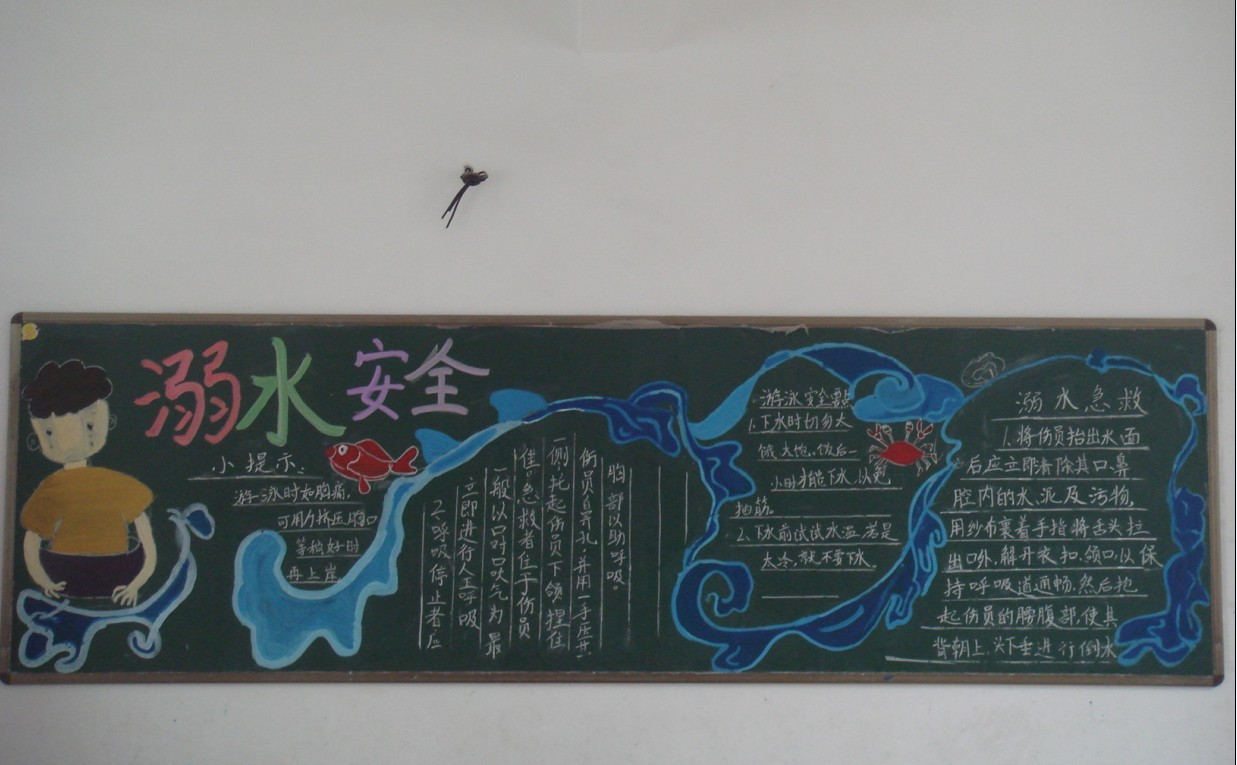 溺水安全
小提示:
游泳时如胸痛,
可用力挤压胸口
等稍好时
再上岸
2.呼吸停止者应
立即进行人工呼吸
一般以口对口吹气为最
佳。急救者位于伤员
一侧,托起伤员下颌,捏住
伤员鼻孔,并用一手压其
胸部以助呼吸。
游泳安全要点
1.下水时切勿太
饿、太饱。饭后一
小时才能下水,以免
抽筋。
2.下水前试试水温,若是
太冷,就不要下水。
溺水急救
1.将伤员抬出水面
后应立即清除其口、鼻
腔内的水、泥及污物,
用纱布裹着手指将舌头拉
出口外,解开衣、扣、领口,以保
持呼吸道通畅,然后抱
起伤员的腰腹部,使其
背朝上、头下垂进行倒水